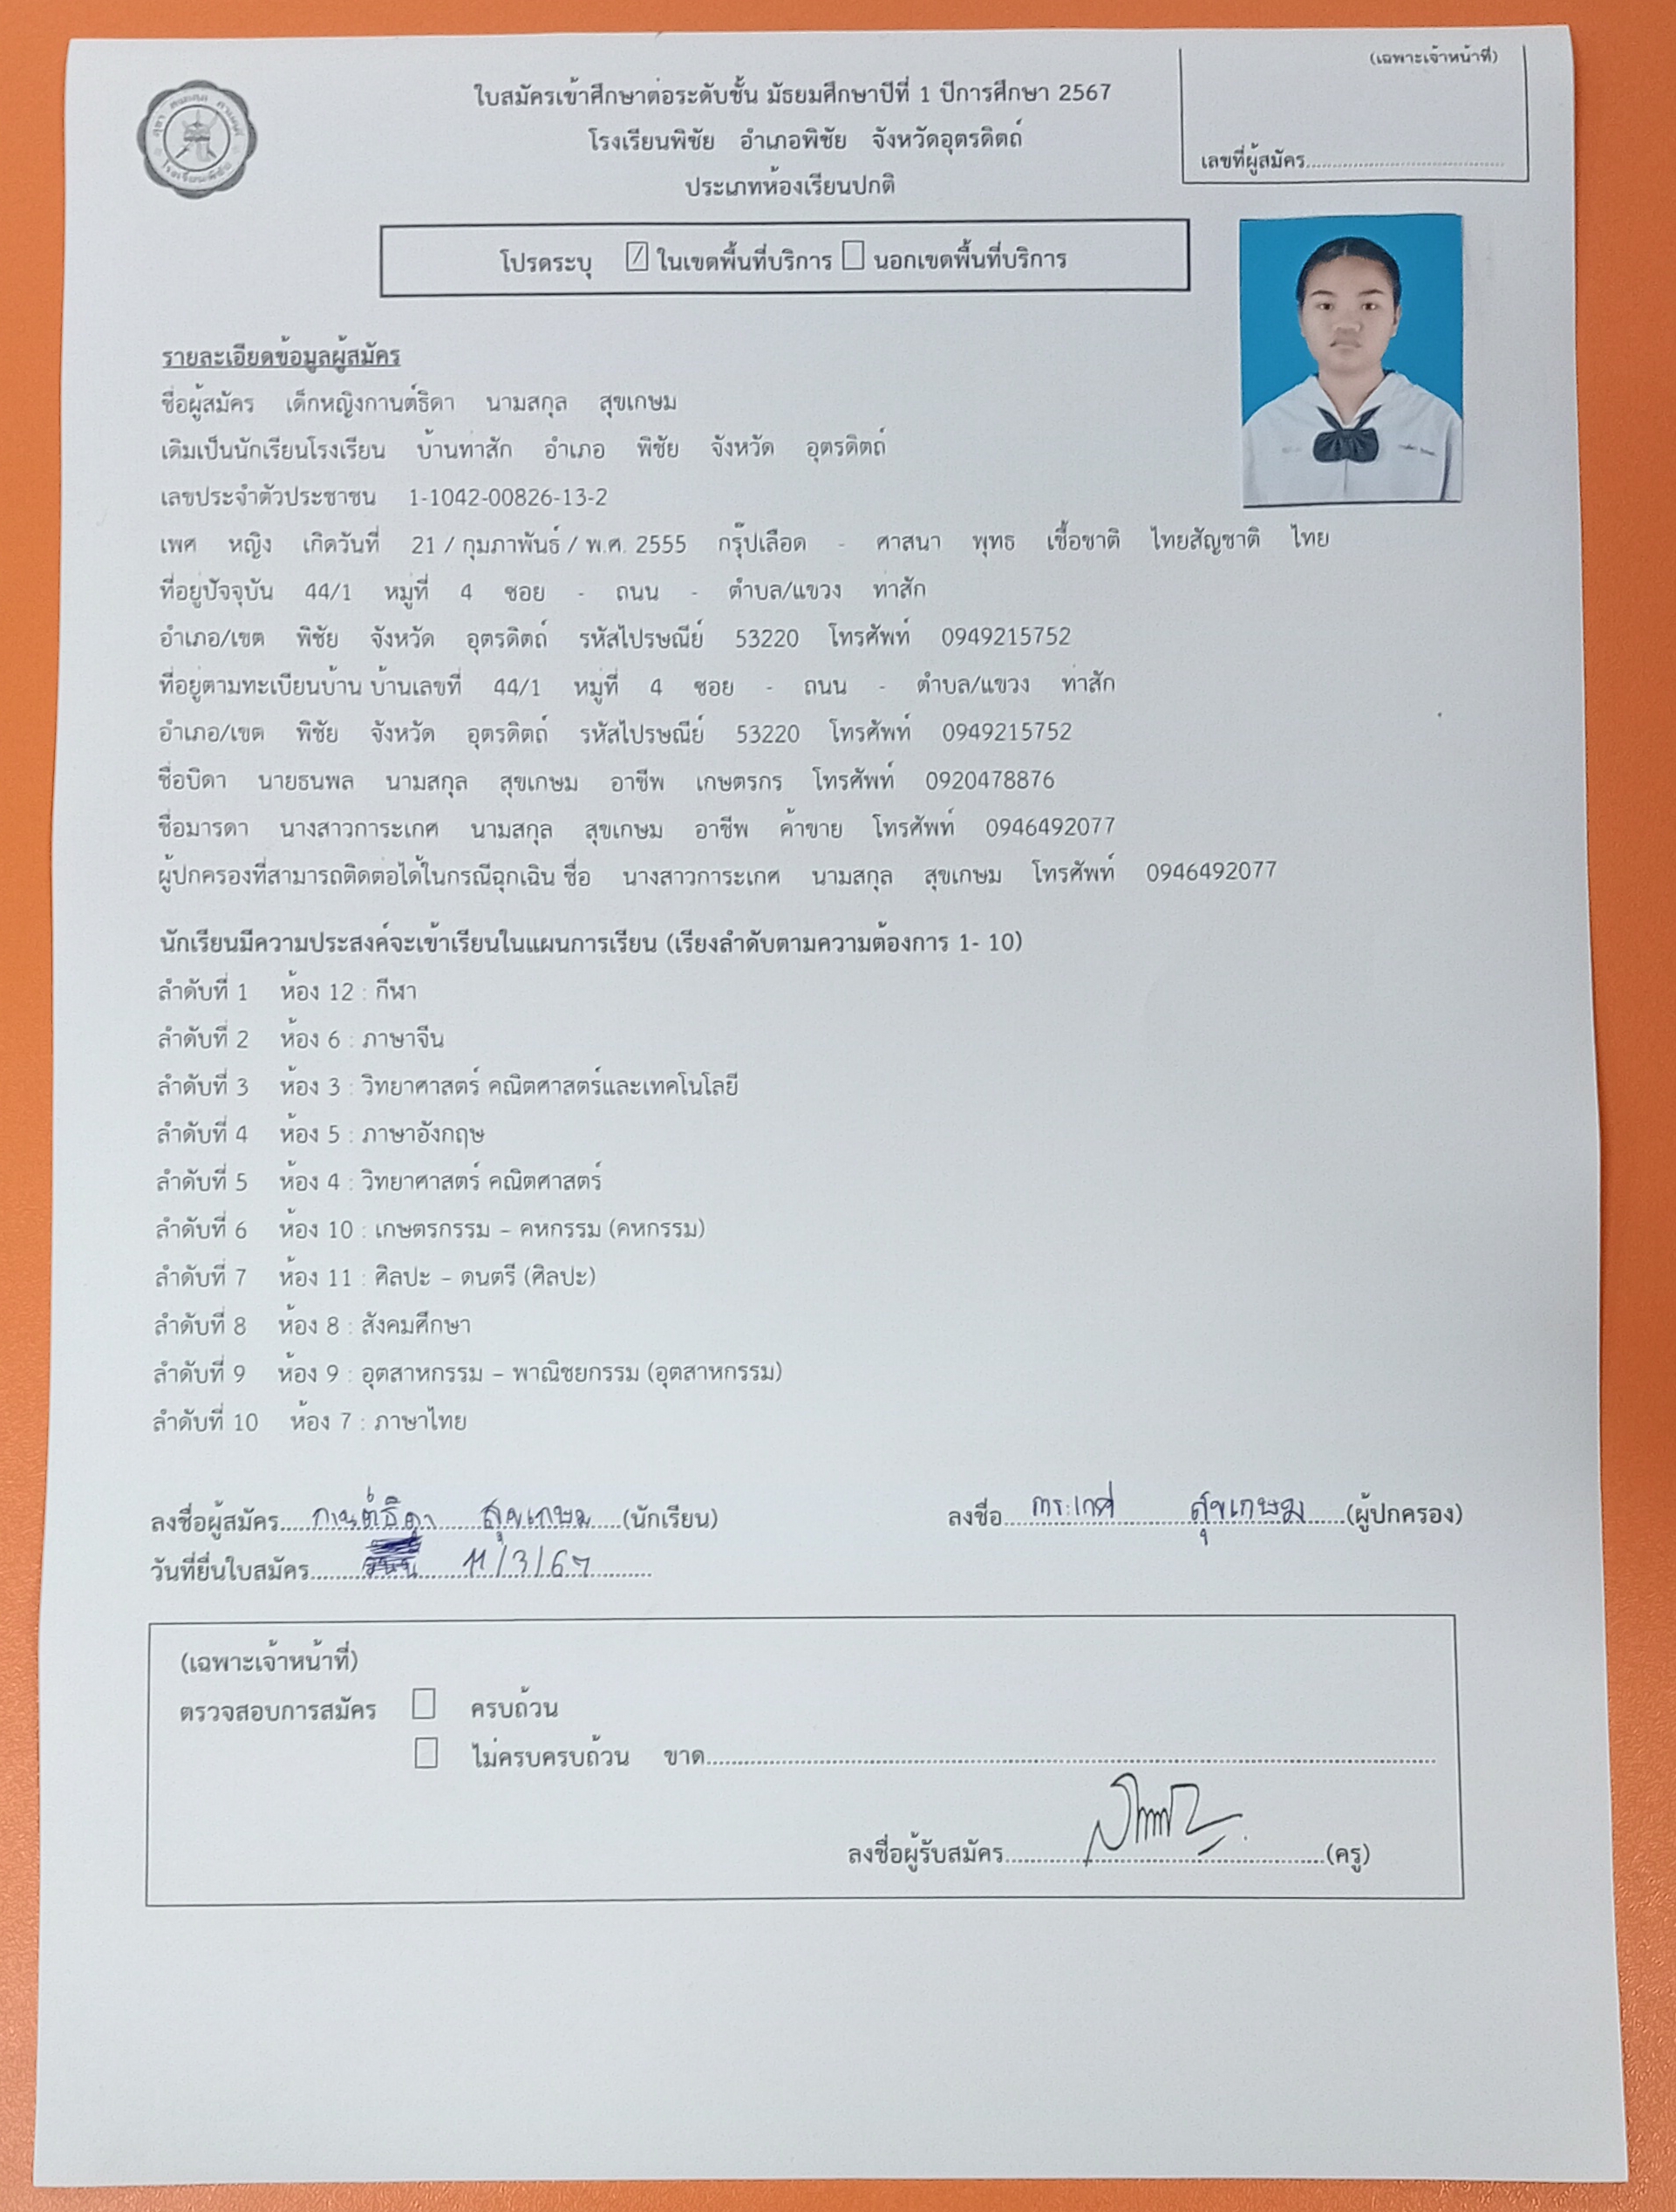 (เฉพาะเจ้าหน้าที่)
ใบสมัครเข้าศึกษาต่อระดับชั้น มัธยมศึกษาปีที่ 1 ปีการศึกษา 2567
โรงเรียนพิชัย อำเภอพิชัย จังหวัดอุตรดิตถ์
เลขที่ผู้สมัคร
ประเภทห้องเรียนปกติ
โปรดระบุ ☑ ในเขตพื้นที่บริการ ☐ นอกเขตพื้นที่บริการ
รายละเอียดข้อมูลผู้สมัคร
ชื่อผู้สมัคร เด็กหญิงกานต์ธิดา นามสกุล สุขเกษม
เดิมเป็นนักเรียนโรงเรียน บ้านท่าสัก อำเภอ พิชัย จังหวัด อุตรดิตถ์
เลขประจำตัวประชาชน 1-1042-00826-13-2
เพศ หญิง เกิดวันที่ 21 / กุมภาพันธ์ / พ.ศ. 2555 กรุ๊ปเลือด - ศาสนา พุทธ เชื้อชาติ ไทยสัญชาติ ไทย
ที่อยู่ปัจจุบัน 44/1 หมู่ที่ 4 ซอย - ถนน - ตำบล/แขวง ท่าสัก
อำเภอ/เขต พิชัย จังหวัด อุตรดิตถ์ รหัสไปรษณีย์ 53220 โทรศัพท์ 0949215752
ที่อยู่ตามทะเบียนบ้าน บ้านเลขที่ 44/1 หมู่ที่ 4 ซอย - ถนน - ตำบล/แขวง ท่าสัก
อำเภอ/เขต พิชัย จังหวัด อุตรดิตถ์ รหัสไปรษณีย์ 53220 โทรศัพท์ 0949215752
ชื่อบิดา นายธนพล นามสกุล สุขเกษม อาชีพ เกษตรกร โทรศัพท์ 0920478876
ชื่อมารดา นางสาวการะเกศ นามสกุล สุขเกษม อาชีพ ค้าขาย โทรศัพท์ 0946492077
ผู้ปกครองที่สามารถติดต่อได้ในกรณีฉุกเฉิน ชื่อ นางสาวการะเกศ นามสกุล สุขเกษม โทรศัพท์ 0946492077
นักเรียนมีความประสงค์จะเข้าเรียนในแผนการเรียน (เรียงลำดับตามความต้องการ 1- 10)
ลำดับที่ 1 ห้อง 12 : กีฬา
ลำดับที่ 2 ห้อง 6 : ภาษาจีน
ลำดับที่ 3 ห้อง 3 : วิทยาศาสตร์ คณิตศาสตร์และเทคโนโลยี
ลำดับที่ 4 ห้อง 5 : ภาษาอังกฤษ
ลำดับที่ 5 ห้อง 4 : วิทยาศาสตร์ คณิตศาสตร์
ลำดับที่ 6 ห้อง 10 : เกษตรกรรม – คหกรรม (คหกรรม)
ลำดับที่ 7 ห้อง 11 : ศิลปะ – ดนตรี (ศิลปะ)
ลำดับที่ 8 ห้อง 8 : สังคมศึกษา
ลำดับที่ 9 ห้อง 9 : อุตสาหกรรม – พาณิชยกรรม (อุตสาหกรรม)
ลำดับที่ 10 ห้อง 7 : ภาษาไทย
ลงชื่อผู้สมัคร กานต์ธิดา สุขเกษม (นักเรียน) ลงชื่อ การะเกศ สุขเกษม (ผู้ปกครอง)
วันที่ยื่นใบสมัคร 11/3/67
(เฉพาะเจ้าหน้าที่)
ตรวจสอบการสมัคร ☐ ครบถ้วน
☐ ไม่ครบครบถ้วน ขาด
ลงชื่อผู้รับสมัคร (ครู)